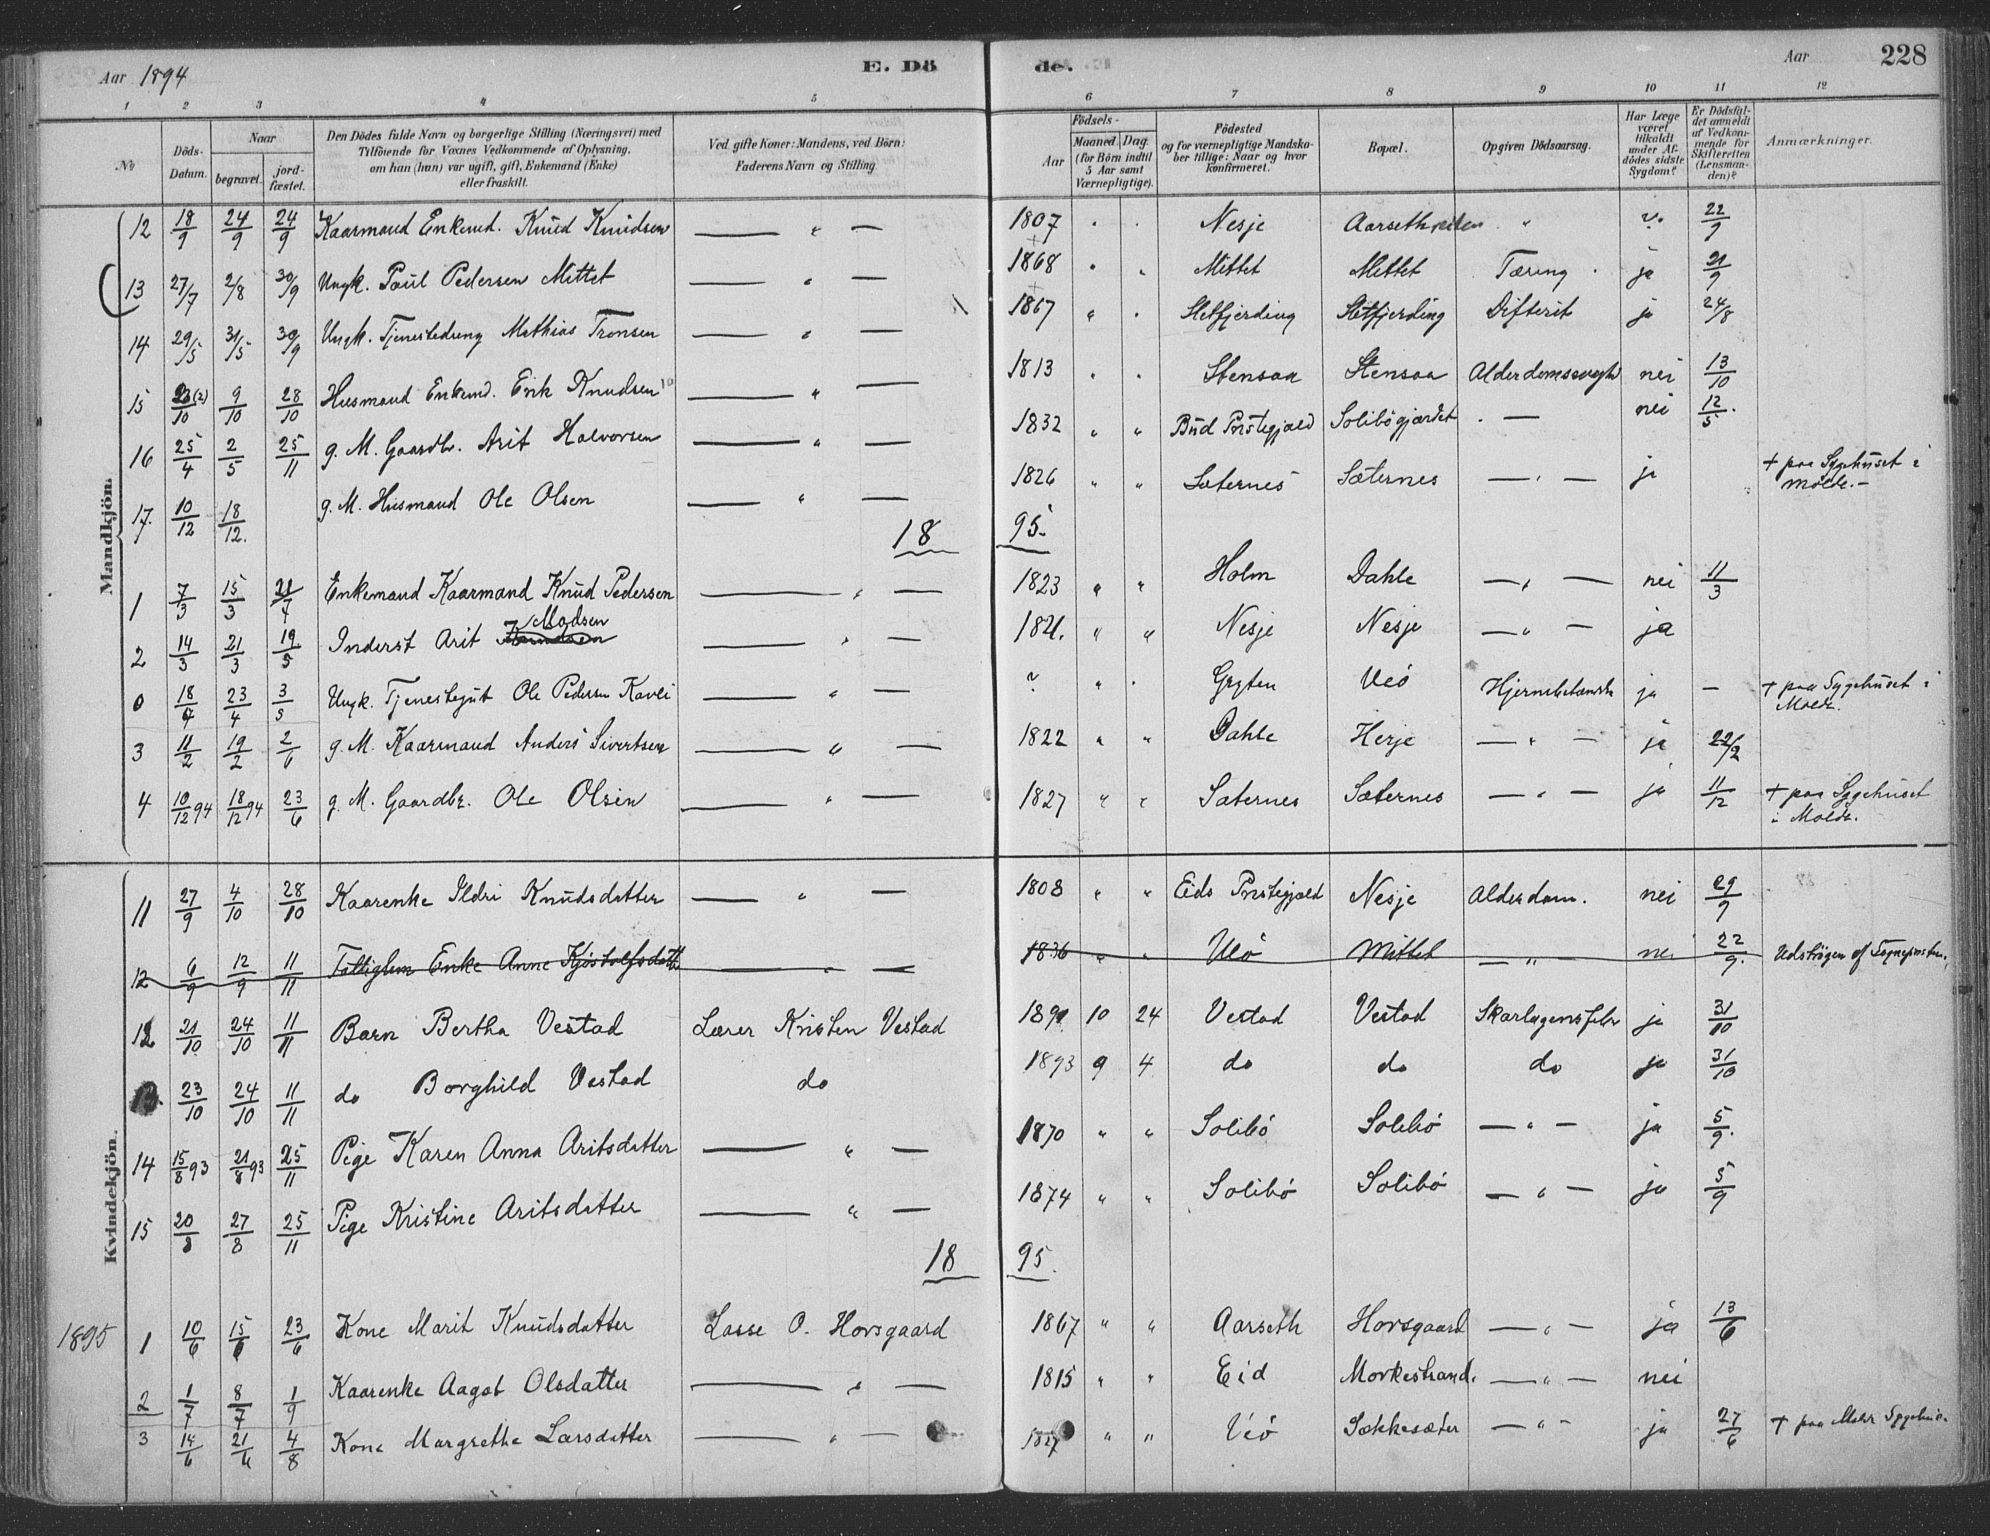 Aar 1894 E. Dö de. Aar 228
1 2 3 4 5 6 7 8 9 10 11 12
No Döds-Datum. Naar begravet. jordfæstet. Den Dödes fulde Navn og borgerlige Stilling (Næringsvei) med Tilföiende for Voxnes Vedkommende af Oplysning, om han (hun) var ugift, gift, Enkemand (Enke) eller fraskilt. Ved gifte Koner: Mandens, ved Börn: Faderens Navn og Stilling. Aar Födsels- Maaned. Dag. (for Börn indtil 5 Aar samt Værnepligtige). Födested og for værnepligtige Mandskaber tillige: Naar og hvor konfirmeret. Bopæl. Opgiven Dödsaarsag. Har Læge været tilkaldt under Afdödes sidste Sygdom? Er Dödsfaldet anmeldt af Vedkommende for Skifteretten (Lensmanden)? Anmærkninger.
Mandkjön.
12 18/9 24/9 24/9 Kaarmand Enkemd. Knud Knudsen — " — 1807 " " Nesje " 22/9
13 27/7 2/8 30/9 Ungk. Paul Pedersen Mittet — " — 1868 " " Mittet Mittet Tæring ja 21/9
14 29/5 31/5 30/9 Ungk. Tjenestedreng Mathias Tronsen — " — 1867 " " Sletfjerding Sletfjerding Difterit ja 24/8
15 /10 9/10 28/10 Husmand Enkemd. Erik Knudsen — " — 1813 " " Stensaa Stensaa nei 13/10
16 25/4 2/5 25/11 g. M. Gaardbr. Arit Halvorsen — " — 1832 " " Bud Præstegjæld Solibögjærdet — nei 12/5
17. 10/12 18/12. g. M. Husmand Ole Olsen — " — 1826 " " Sæternes Sæternes — " — ja + paa Sygehuset i Molde.
18 95.
1 7/3 15/3 21/7 Enkemand Kaarmand Knud Pedersen — " — 1823 " " Holm Dahle — " — nei 11/3
2 14/3 21/3 19/5 Inderst Arit Madsen — " — 1821. " " Nesje Nesje — " — ja
0 18/4 23/4 3/5 Ungk. Tjenestegut Ole Pedersen Kavli — " — ? " " Grytten Veö ja — + paa Sygehuset i Molde.
3 11/2 19/2 2/6 g. M. Kaarmand Anders Sivertsen — " — 1822 " " Dahle Herje — " — ja 22/2
4 10/12 94 18/12 94 23/6 g. M. Gaardbr. Ole Olsen — " — 1827 " " Sæternes Sæternes — " — ja 11/12 + paa Sygehuset i Molde.
Kvindekjön.
11 27/9 4/10 28/10 Kaarenke Ildri Knudsdatter — " — 1808 " " Eids Præstegjæld Nesje Alderdom. nei 29/9
12 6/9 12/9 11/11 Fattiglem Enke Anne Kjöstolfsdatter — " — 1836 " " Veö Mittet — " — nei 22/9. Udströgen af Sognepresten.
12 21/10 24/10 11/11 Barn Bertha Vestad Lærer Kristen Vestad 1891 10 24 Vestad Vestad Skarlagensfeber ja 31/10
13. 23/10 24/10 11/11 do Borghild Vestad do 1893 9 4 do do do ja 31/10
14 15/8 93 21/8 93 25/11 Pige Karen Anna Aritsdatter — " — 1870 " " Solibö Solibö — " — ja 5/9.
15 20/8 27/8 25/11 Pige Kristine Aritsdatter — " — 1874 " " Solibö Solibö — " — ja 5/9
18 95.
1895 1 10/6 15/6 23/6 Kone Marit Knudsdatter Lasse O. Horsgaard 1867 " " Aarseth Horsgaard — " — ja 13/6
2 1/7 8/7 1/9 Kaarenke Aagot Olsdatter — " — 1815 " " Eid Morkestrand. — " — nei
3 14/6 21/6 4/8 Kone Margrethe Larsdatter — " — 1827 " " Veö Sækkesæter — " — ja 27/6 + paa Molde Sygehus.